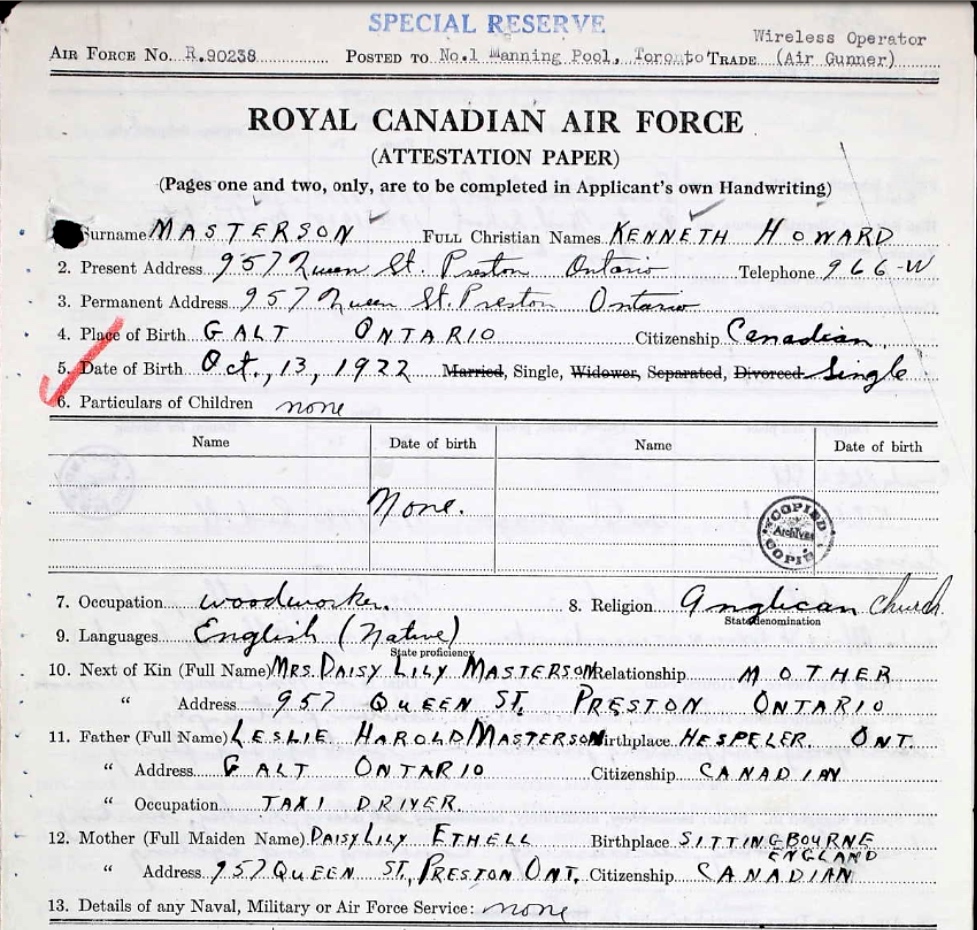 SPECIAL RESERVE
Wireless Operator
AIR FORCE NO. R.90238 POSTED TO No.1 Manning Pool, Toronto TRADE (Air Gunner)
ROYAL CANADIAN AIR FORCE
(ATTESTATION PAPER)
(Pages one and two, only, are to be completed in Applicant's own Handwriting)
Surname MASTERSON FULL Christian Names KENNETH HOWARD
2. Present Address 957 Queen St. Preston Ontario Telephone 966-W
3. Permanent Address 957 Queen St. Preston Ontario
4. Place of Birth GALT ONTARIO Citizenship Canadian.
5. Date of Birth Oct., 13, 1922 Married, Single, Widower, Separated, Divorced. Single
6. Particulars of Children none
Name Date of birth Name Date of birth
None.
COPIED
Archives
COPIE
7. Occupation woodworker. 8. Religion Anglican Church.
State denomination
9. Languages English (Native)
State proficiency
10. Next of Kin (Full Name) MRS. DAISY LILY MASTERSON Relationship MOTHER
" Address 957 QUEEN ST. PRESTON ONTARIO
11. Father (Full Name) LESLIE HAROLD MASTERSON Birthplace HESPELER. ONT.
" Address GALT ONTARIO Citizenship CANADIAN
" Occupation TAXI DRIVER.
12. Mother (Full Maiden Name) DAISY LILY ETHELL Birthplace SITTINGBOURNE
ENGLAND
" Address 957 QUEEN ST., PRESTON ONT. Citizenship CANADIAN
13. Details of any Naval, Military or Air Force Service: none